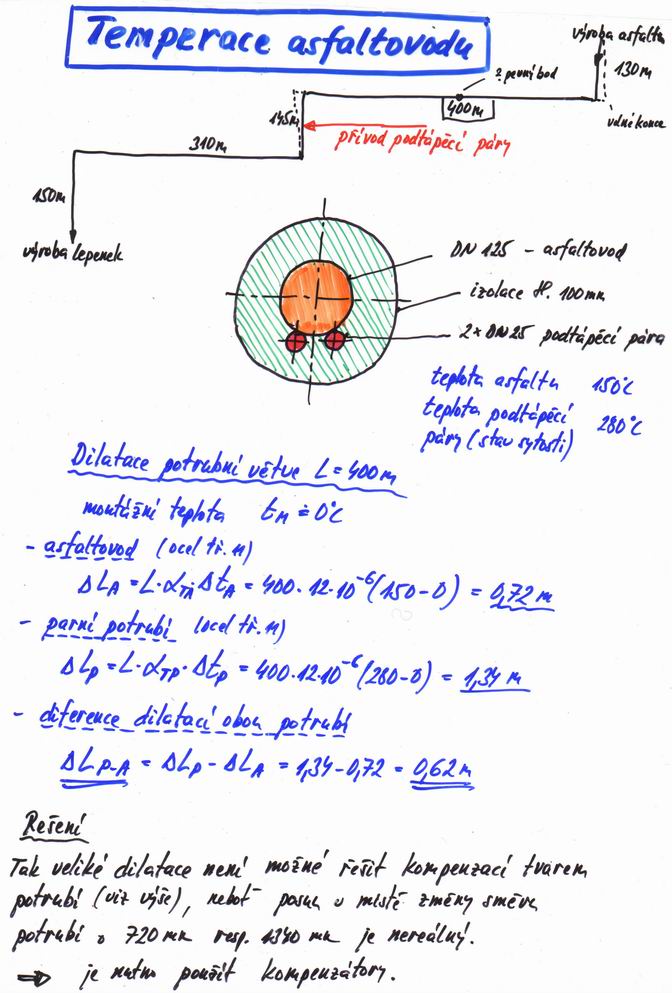 Temperace asfaltovodu
výroba asfaltu
130m
? pevný bod
400m
volné konce
145m
přívod podtápěcí páry
310m
150m
výroba lepenek
DN 125 - asfaltovod
izolace tl. 100mm
2×DN25 podtápěcí pára
teplota asfaltu 150°C
teplota podtápěcí 280°C
páry (stav sytosti)
Dilatace potrubní větve L=400m
montážní teplota tM = 0°C
- asfaltovod (ocel tř. 11)
ΔLA = L·αTA·ΔtA = 400·12·10⁻⁶(150-0) = 0,72 m
- parní potrubí (ocel tř. 11)
ΔLp = L·αTP·Δtp = 400·12·10⁻⁶(280-0) = 1,34 m
- diference dilatací obou potrubí
ΔLP-A = ΔLp - ΔLA = 1,34-0,72 = 0,62m
Řešení
Tak veliké dilatace není možné řešit kompenzací tvarem
potrubí (viz výše), neboť posun v místě změny směru
potrubí o 720 mm resp. 1340 mm je nereálný.
⇒ je nutno použít kompenzátory.